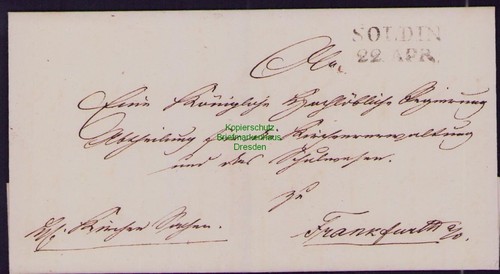 SOLDIN
22. APR.
An
Eine Königliche Hochlöbliche Regierung
Abtheilung Kirchenverwaltung
und des Schulwesen.
Kopierschutz
Briefmarkenhaus
Dresden
zu
Kirchen Sachen.
Frankfurth a/O.